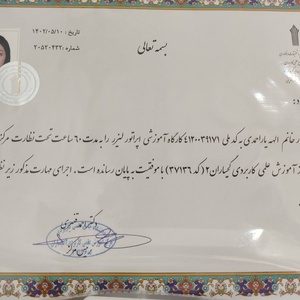 تاریخ: ۱۴۰۲/۰۵/۱۰
شماره: ۲۰۵۲۰۴۳۲
بسمه تعالی
خانم الهه یاراحمدی به کد ملی ۴۱۲۰۰۳۹۱۷۱ کارگاه آموزشی اپراتور لیزر را به مدت ۶۰ ساعت تحت نظارت مرکز
آموزش علمی کاربردی کمیاران ۲ (کد ۳۷۱۳۶) با موفقیت به پایان رسانده است. اجرای مهارت مذکور زیر نظر